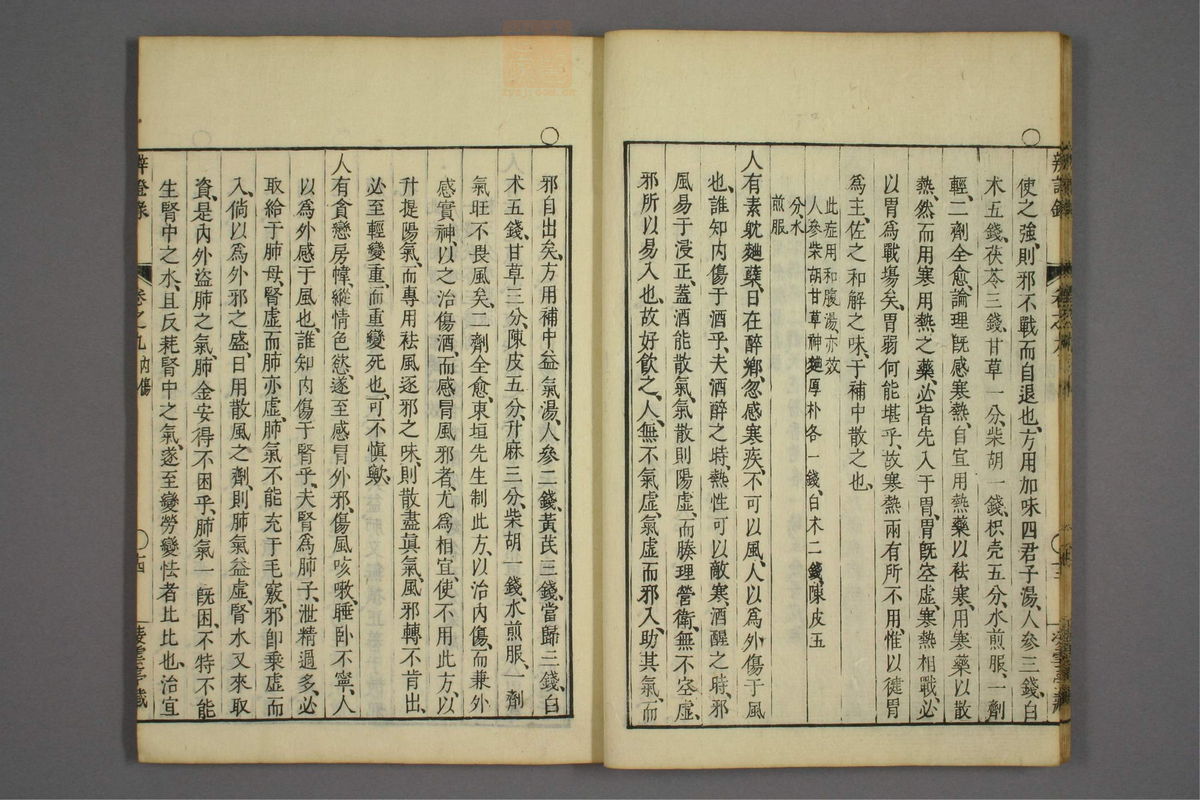 使之強、則邪不戰而自退也、方用加味四君子湯、人參三錢、白
术五錢、茯苓三錢、甘草一分、柴胡一錢、枳壳五分、水煎服、一劑
輕、二劑全愈、論理旣感寒熱、自宜用熱藥以祛寒、用寒藥以散
熱、然而用寒用熱之藥、必皆先入于胃、胃旣空虛、寒熱相戰、必
以胃爲戰塲矣、胃弱何能堪乎、故寒熱兩有所不用、惟以健胃
爲主、佐之和解之味、于補中散之也、
此症用和腹湯亦效
人參柴胡甘草神麯厚朴各一錢、白术二錢、陳皮五
分、水
煎服、
人有素躭麯蘖、日在醉鄉、忽感寒疾、不可以風、人以爲外傷于風
也、誰知内傷于酒乎、夫酒醉之時、熱性可以敵寒、酒醒之時、邪
風易于浸正、蓋酒能散氣、氣散則陽虛、而腠理營衛、無不空虛、
邪所以易入也、故好飲之、人、無不氣虛、氣虛而邪入、助其氣、而
邪自出矣、方用補中益氣湯、人參二錢、黃芪三錢、當歸三錢、白
术五錢、甘草三分、陳皮五分、升麻三分、柴胡一錢、水煎服、一劑
氣旺不畏風矣、二劑全愈、東垣先生制此方、以治内傷、而兼外
感實神、以之治傷酒、而感冒風邪者、尤爲相宜、使不用此方、以
升提陽氣、而專用祛風逐邪之味、則散盡眞氣、風邪轉不肯出、
必至輕變重、而重變死也、可不愼歟、
人有貪戀房幃、縱情色慾、遂至感冒外邪、傷風咳嗽、睡卧不寧、人
以爲外感于風也、誰知内傷于腎乎、夫腎爲肺子、泄精過多、必
取給于肺母、腎虛而肺亦虛、肺氣不能充于毛竅、邪卽乘虛而
入、倘以爲外邪之盛、日用散風之劑、則肺氣益虛、腎水又來取
資、是内外盜肺之氣、肺金安得不困乎、肺氣一旣困、不特不能
生腎中之水、且反耗腎中之氣、遂至變勞變怯者比比也、治宜
辨證錄
卷之九内傷
十四